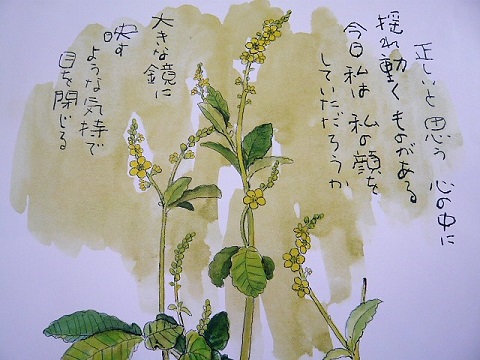 正しいと思う 心の中に
揺れ動くものがある
今日私は 私の顔を
していただろうか
大きな鏡に
映す
ような気持で
目を閉じる